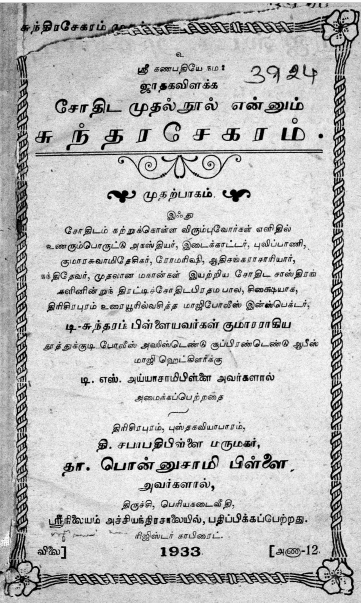 சுந்திரசேகரம்
உ
ஸ்ரீ கணபதியே நம:
3924
ஜாதகவிளக்க
சோதிட முதல்நூல் என்னும்
சுந்தரசேகரம்.
முதற்பாகம்.
இஃது
சோதிடம் கற்றுக்கொள்ள விரும்புவோர்கள் எளிதில்
உணரும்பொருட்டு அகஸ்தியர், இடைக்காட்டர், புலிப்பாணி,
குமாரசுவாமிதேசிகர், ரோமரிஷி, ஆதிசங்கராசாரியார்,
நந்திதேவர், முதலான மகான்கள் இயற்றிய சோதிட சாஸ்திரங்
களினின்றுந் திரட்டி சோதிடபிரதமபால, சிக்ஷையாக,
திரிசிரபுரம் உரையூரில்வசித்த மாஜிபோலீஸ் இன்ஸ்பெக்டர்,
டி-சுந்தரம் பிள்ளையவர்கள் குமாரராகிய
தூத்துக்குடி போலீஸ் அஸிஸ்டெண்டு சூப்பிரண்டெண்டு ஆபீஸ்
மாஜி ஹெட்கிளார்க்கு
டி. எஸ். அய்யாசாமிபிள்ளை அவர்களால்
அமைக்கப்பெற்றதை
திரிசிரபுரம், புஸ்தகவியாபாரம்,
தி. சபாபதிபிள்ளை மருமகர்,
தா. பொன்னுசாமி பிள்ளை
அவர்களால்,
திருச்சி, பெரியகடைவீதி,
ஸ்ரீநிலையம் அச்சியந்திரசாலையில், பதிப்பிக்கப்பெற்றது.
ரிஜிஸ்டர் காபிரைட்.
விலை] 1933 [அணா-12